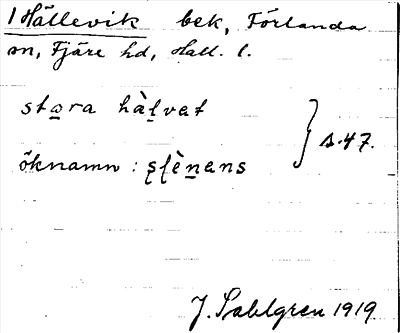 1 Hällevik bek, Förlanda
sn, Fjäre hd, Hall. l.
sto̲ra hàl̲vet
öknamn : s̨l̨èn̲ens
s. 47.
J. Sahlgren 1919